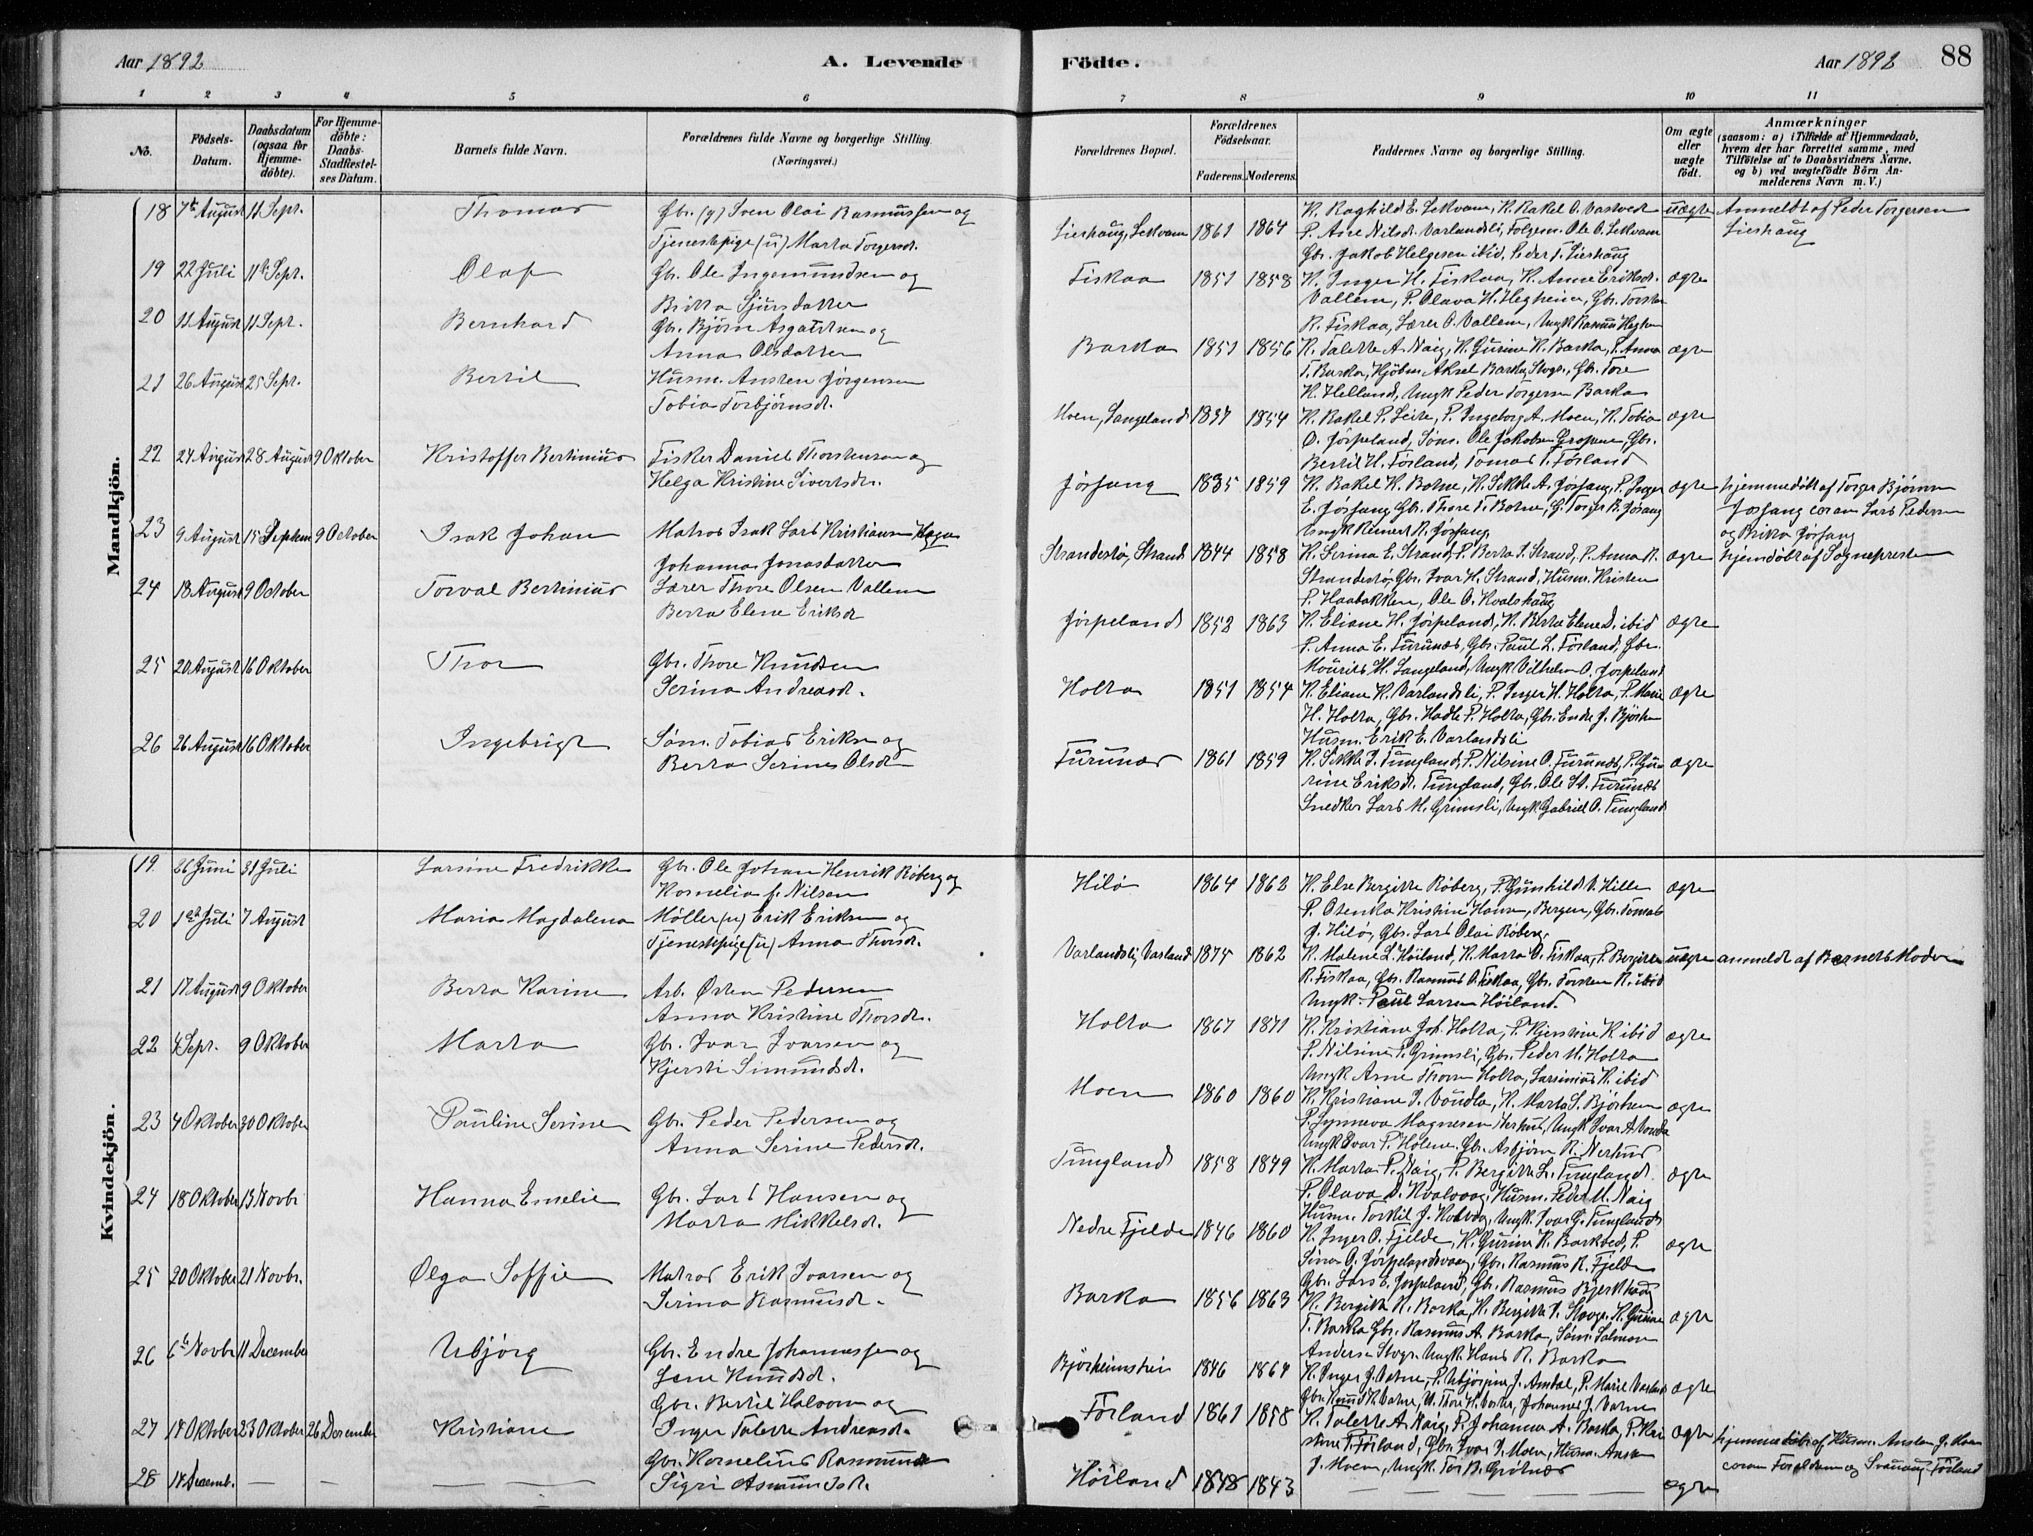 Aar 1892
A. Levende
Födte.
Aar 1892
88
1 2 3 4 5 6 7 8 9 10 11
No.
Födsels-Datum.
Daabsdatum (ogsaa for Hjemme-döbte).
For Hjemme-döbte: Daabs-Stadfæstel-ses Datum.
Barnets fulde Navn.
Forældrenes fulde Navne og borgerlige Stilling.
(Næringsvei.)
Forældrenes Bopæl.
Forældrenes Födselsaar.
Faderens. Moderens.
Faddernes Navne og borgerlige Stilling.
Om ægte eller uægte födt.
Anmærkninger
(saasom: a) i Tilfælde af Hjemmedaab, hvem der har forrettet samme, med Tilföielse af to Daabsvidners Navne, og b) ved uægtefödte Börn An-melderens Navn m. V.)
Mandkjön.
18 7de August 11 Sept. Thomas Gbr. (y) Sven Olai Rasmussen og
Tjenestepige (u) Marta Torgersdr.
Lieshaug, Lekvam 1861 1864 K. Raghild E. Lekvam, K. Rakel O. Vastvedt
P. Ane Nilsdr. Varlandsli, Folgem. Ole O. Lekvam
Gbr. Jakob Helgesen ibid, Peder T. Lieshaug
uægte Anmeldt af Peder Torgersen
Lieshaug
19 22 Juli 11te Sept. Olaf Gbr. Ole Ingemundsen og
Britta Sjursdatter
Fiskaa 1851 1858 K. Inger H. Fiskaa, K. Anne Eriksdr.
Vallem, P. Olava H. Hegheim, Gbr. Torsten
R. Fiskaa, Lærer O. Vallem, Ungk Rasmus Heghem
ægte
20 11 August 11 Sept. Bernhard Gbr. Bjørn Asgautsen og
Anna Olsdatter
Barka 1851 1856 K. Talette A. Naig, K. Gurine K. Barka, P. Anna
T. Barka, Kjøbm. Aksel Barka, Stvgr., Gbr. Tore
K. Helland, Ungk Peder Torgersen Barka
ægte
21 26 August 25 Sept. Bertil Husm. Ansten Jørgensen
Tobia Torbjørnsdr.
Moen, Langeland 1837 1854 K. Rakel P. Leite, P. Ingeborg A. Moen, K. Tobia
O. Jørpeland, Søm. Ole Jakobsen Gropene, Gbr.
Bertil H. Førland, Tomas T. Førland
ægte
22 24 August 28 August 9 Oktober Kristoffer Bertinius Fisker Daniel Thorstensen og
Helga Kristine Sivertsdr.
Jøsfang 1835 1859 K. Rakel K. Botne, K. Sikke A. Jøsfang, P. Inger
E. Jøsfang Gbr. Thore T. Botne, G. Torger B. Jøsang
Ungk Reinert R. Jøsfang
ægte hjemmedøbt af Torger Bjørnsen
Jøsfang coram Lars Pedersen
og Brita Jøsfang
23 9 August 15 Septem 9 October Isak Johan Matros Isak Lars Kristiansen Haga
Johanna Jonasdatter
Strandestø, Strand 1844 1858 K. Serina E. Strand, P. Berta S. Strand, P. Anna K.
Strandestø, Gbr. Ivar H. Strand, Husm. Kristen
P. Haabakken, Ole O. Kvalshaug
ægte hjemdøbt af Sognepresten
24 18 August 9 October Torval Bertinius Lærer Thore Olsen Vallem
Berta Elene Eriksdr
Jørpeland 1852 1863 K. Eliane H. Jørpeland, K. Berta Elene D. ibid
P. Anna E. Furunæs, Gbr. Paul L. Førland, Gbr.
Mourits H. Langeland, Ungk Vilhelm O. Jørpeland
ægte
25 20 August 16 Oktober Thor Gbr. Thore Knudsen
Serina Andreasdr.
Holta 1851 1854 K. Eliane K. Varlandsli, P. Inger H. Holta, P. Marie
H. Holta, Gbr. Hadle P. Holta, Gbr. Endre J. Bjørhei
Husm. Erik E. Varlandsli
ægte
26 26 August 16 Oktober Ingebrigt Søm. Tobias Eriksen og
Berta Serine Olsdr
Furunæs 1861 1859 K. Sikke J. Tungland, P. Nilsine O. Furunæs, P. Gu-
rine Eriksdr. Tungland, Gbr. Ole St. Furunæs
Snedker Lars M. Grimsli, Ungk Gabriel O. Tungland
ægte
Kvindekjön.
19 26 Juni 31 Juli Larsine Fredrikke Gbr. Ole Johan Henrik Røberg og
Kornelia f. Nilsen
Hilø 1864 1862 K. Else Bergitte Røberg, P. Gunhild V. Hille
P. Otenka Kristine Hansen, Bergen, Gbr. Tomas
J. Hilø, Gbr. Lars Olai Røberg.
ægte
20 1ste Juli 7 August Maria Magdalena Møller (u) Erik Eriksen og
Tjenestepige (u) Anna Thorsdr.
Varlandsli, Varland 1875 1862 K. Malene L. Høiland, K. Marta O. Fiskaa, P. Bergitta
R. Fiskaa, Gbr. Rasmus O. Fiskaa, Gbr. Torsten R. ibid
Ungk. Paul Larsen Høiland.
uægte anmeldt af Barnets Moder
21 17 August 9 Oktober Berta Karine Arb. Østen Pedersen
Anna Kristine Thorsdr.
Holta 1867 1871 K. Kristiane Joh. Holta, P. Kjerstine K. ibid
P. Nilsine P. Grimsli, Gbr. Peder M. Holta
Ungk Arne Thorsen Holta, Larsinius K. ibid
ægte
22 4 Sept. 9 Oktober Marta Gbr. Ivar Ivarsen og
Kjersti Simundsdr.
Moen 1860 1860 K. Kristiane I. Voudla, K. Marta S. Bjørheim
P. Synneva Magnesen Nerhus, Ungk Ivar A. Voudla
Ungk Ivar P. Holene. Gbr. Asbjørn R. Nerhus
ægte
23 4 Oktober 30 Oktober Pauline Serine Gbr. Peder Pedersen og
Anna Serine Pedersdr.
Tungland 1858 1849 K. Marta P. Naig, P. Bergitta L. Tungland.
P. Olava D. Kvalvaag, Husm. Peder M. Naig
Husm. Torkil J. Kolbæg, Ungk. Ivar G. Tungland
ægte
24 18 Oktober 13 Novbr Hanna Emelie Gbr. Lars Hansen og
Marta Mikkelsdr.
Nedre Fjelde 1846 1860 K. Inger O. Fjelde, K. Gurine K. Barkved, P.
Sina O. Jørpelandsvaag, Gbr. Rasmus R. Fjelde
Gbr. Lars E. Jørpeland, Gbr. Rasmus Bjerkhaas
ægte
25 20 Oktober 21 Novbr. Olga Soffie Matros Erik Ivarsen og
Serina Rasmusdr.
Barka 1856 1863 K. Bergith K. Barka, K. Bergitte T. Stvgr. K. Gurine
T. Barka Gbr. Rasmus A. Barka, Søm. Salmon
Andersen Stvgr. Ungk. Hans R. Barka
ægte
26 6te Novbr 11 December Ubjørg Gbr. Endre Johannessen og
Lene Knudsdr.
Bjørheimstein 1846 1864 K. Inger J. Vatne, P. Ubjørgine J. Amdal, P. Marie Varland
Gbr. Knud K. Vatne, U. Tore K. Vatne, Johannes J. Vatne
ægte
27 14 Oktober 23 Oktober 26 December Kristiane Gbr. Bertil Halvorsen og
Inger Talette Andreasdr.
Førland 1861 1858 K. Talette A. Naig, P. Johanna A. Barka, P. Kri
stine T. Førland, Gbr. Ivar I. Moen, Husm. Ansten
J. Moen, Ungk. Tor B. Grøtnæs
ægte hjemmedøbt af Husm. Ansten J. Moen
coram Forældrene og Svanaug Førland
28 14 Decemb. — — — — Gbr. Kornelius Rasmussen
Sigri Asmundsdr.
Høiland 1848 1843 — — — — ægte